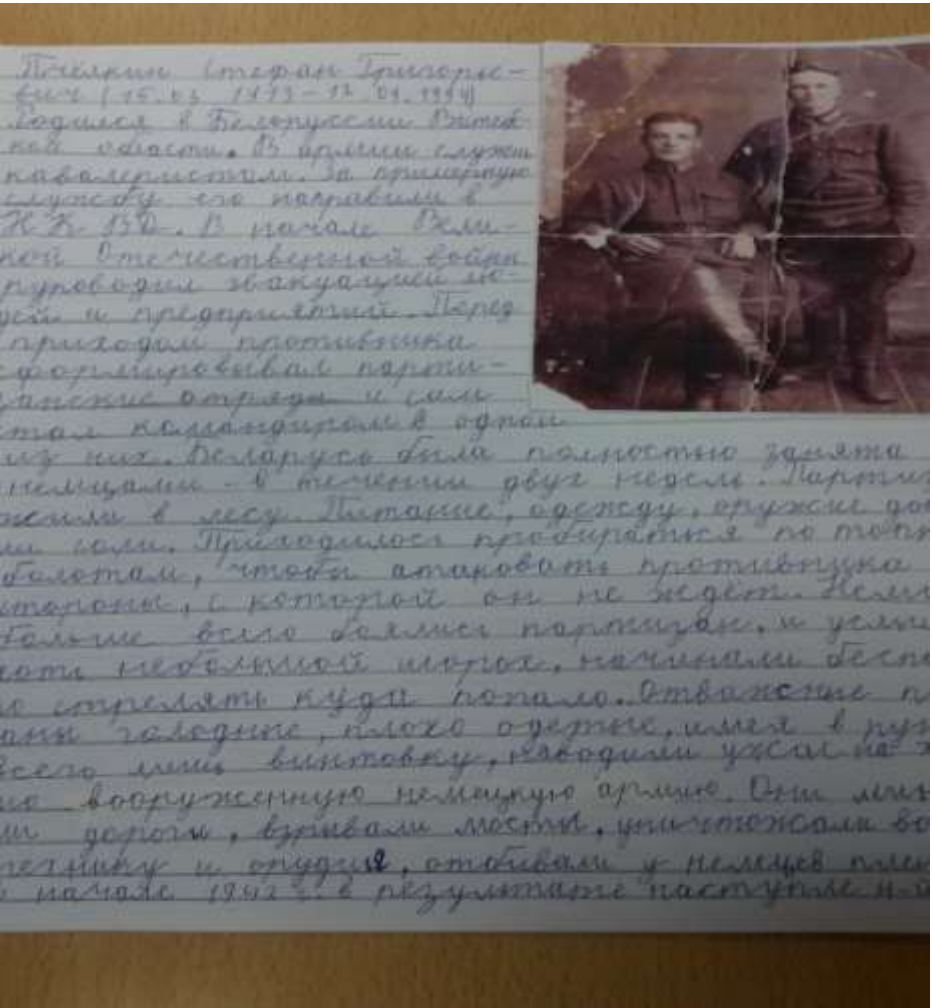 Пчелкин Стефан Григорье-
вич (15.03 1913 - 17.01.1994)
Родился в Белоруссии Витеб-
кой области. В армии служил
кавалеристом. За примерную
службу его направили в
НКВД. В начале Вели-
кой Отечественной войны
руководил эвакуацией лю-
дей и предприятий. Перед
приходом противника
сформировывал парти-
занские отряды и сам
стал командиром в одном
из них. Беларусь была полностью занята
немцами - в течении двух недель. Партиз
жили в лесу. Питание, одежду, оружие до
ли сами. Приходилось пробираться по топк
болотам, чтобы атаковать противника
стороны, с которой он не ждёт. Нем
больше всего боялись партизан, и услы
хоть небольшой шорох, начинали бесп
о стрелять куда попало. Отважные п
аны голодные, плохо одетые, имея в рук
всего лишь винтовку, наводили ужас на х
шо вооруженную немецкую армию. Они мин
ли дороги, взрывали мосты, уничтожали во
технику и орудия, отбивали у немцев плен
в начале 1942 г. в результате наступле